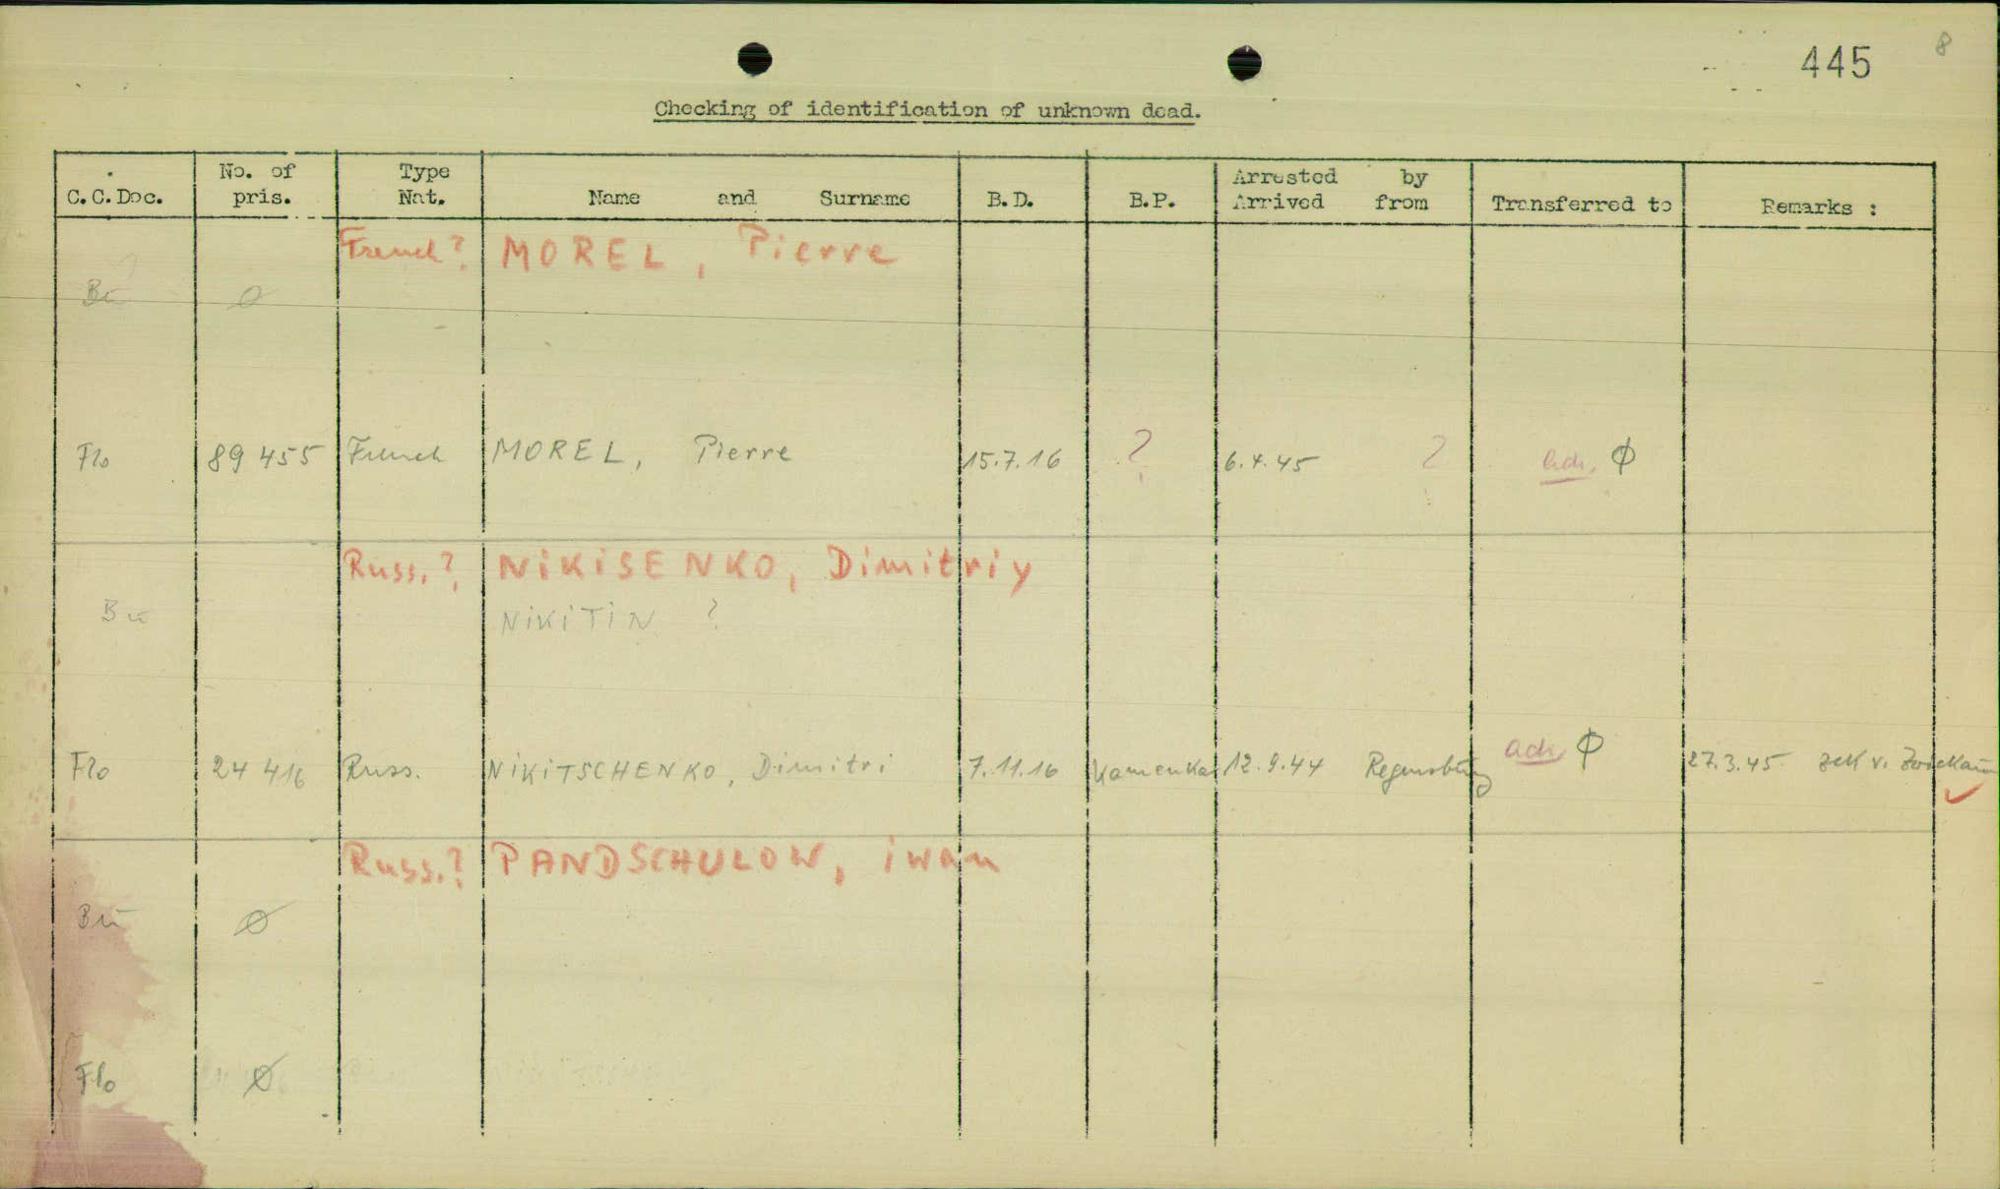 445 8
Checking of identification of unknown dead.
C.C.Doc. No. of pris. Type Nat. Name and Surname B.D. B.P. Arrested by Arrived from Transferred to Remarks :
French? MOREL, Pierre
Bu ø
Flo 89 455 French MOREL, Pierre 15.7.16 ? 6.4.45 ? ø
Russ.? NIKISENKO, Dimitriy
Bu NIKITIN ?
Flo 24 416 Russ. NIKITSCHENKO, Dimitri 7.11.16 Kamenka 12.9.44 Regensburg ø 27.3.45 v. Zwickau
Russ.? PANDSCHULOW, iwan
Bu ø
Flo ø